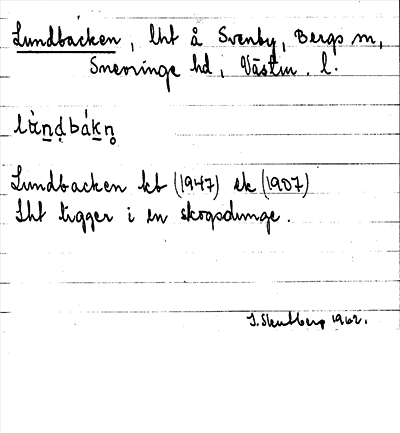 Lundbacken, lht å Svenby, Bergs sn,
Snevringe hd, Västm. l.
lu̇̀nḍbákn̥
Lundbacken kb (1947) ek (1907)
Lht ligger i en skogsdunge.
1962.